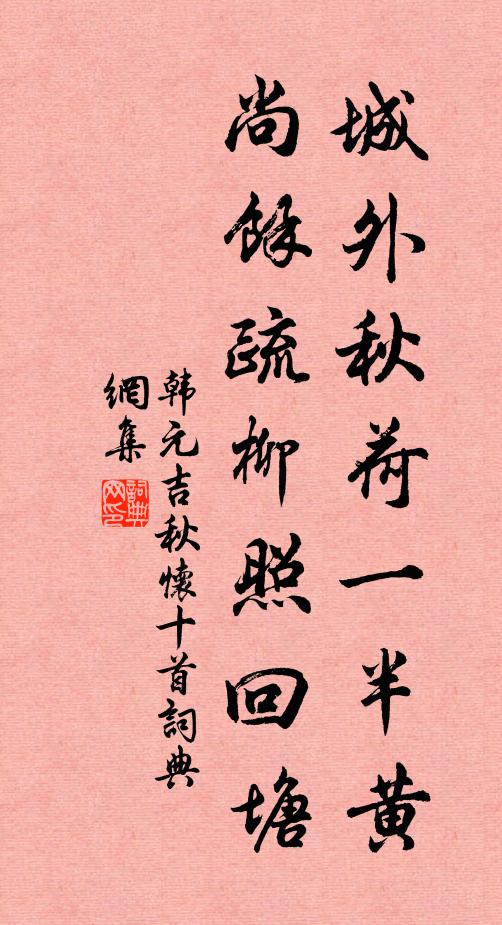 城外秋荷一半黄
尚餘疏柳照回塘
韩元吉秋懷十首詞典
網集
詞典网印